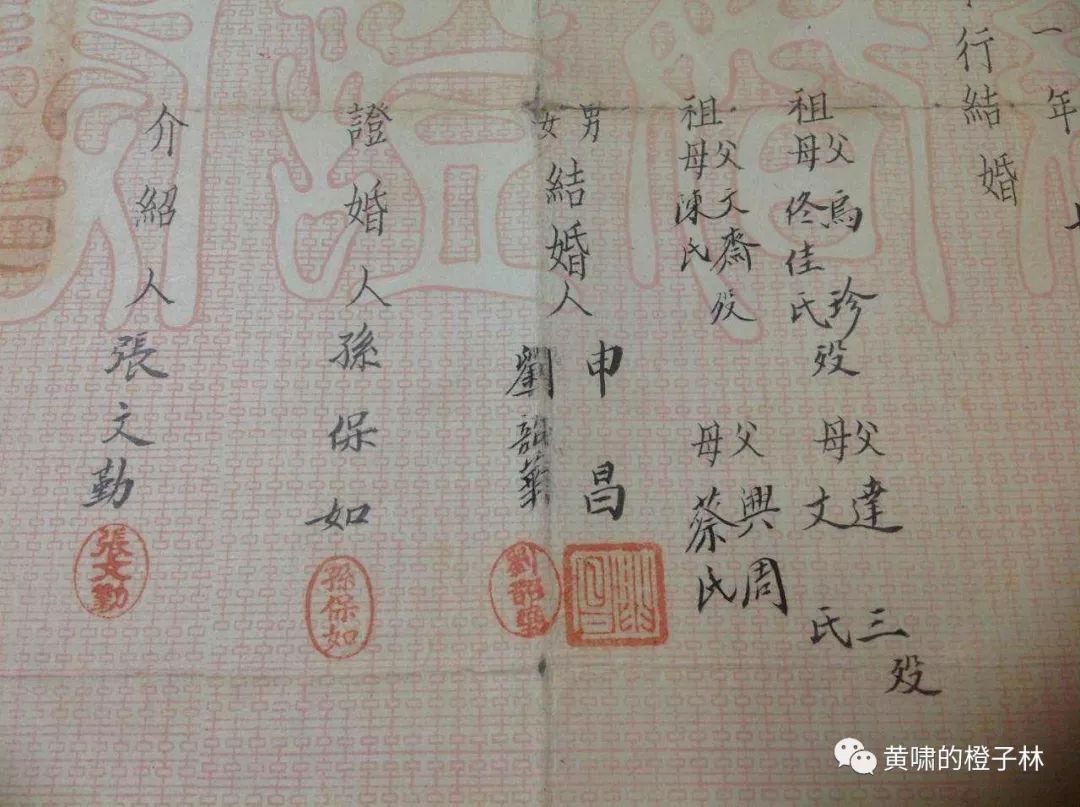 一年七
行結婚
祖父烏珍歿
母佟佳氏
父達三歿
母文氏
祖父文齋歿
母陳氏
父興周
母蔡氏
男
女
結婚人
申昌
劉韶華
證婚人孫保如
孫保如
介紹人張文勤
張文勤
黄啸的橙子林